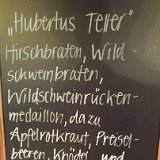 „Hubertus Teller"
Hirschbraten, Wild-
schweinbraten,
Wildschweinrücken-
medaillon, dazu
Apfelrotkraut, Preisel-
beeren, Knödel und